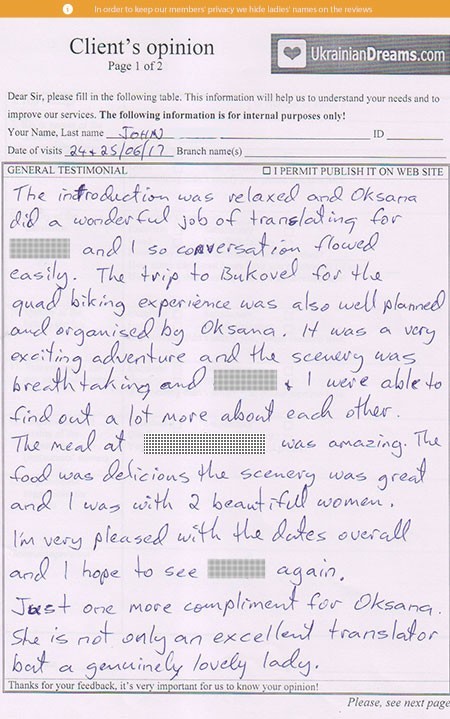 In order to keep our members' privacy we hide ladies' names on the reviews
Client's opinion
Page 1 of 2
UkrainianDreams.com
Dear Sir, please fill in the following table. This information will help us to understand your needs and to
improve our services. The following information is for internal purposes only!
Your Name, Last name JOHN ID
Date of visits 24 & 25/06/17 Branch name(s)
GENERAL TESTIMONIAL ☐ I PERMIT PUBLISH IT ON WEB SITE
The introduction was relaxed and Oksana
did a wonderful job of translating for
and I so conversation flowed
easily. The trip to Bukovel for the
quad biking experience was also well planned
and organised by Oksana. It was a very
exciting adventure and the scenery was
breathtaking and & I were able to
find out a lot more about each other.
The meal at was amazing. The
food was delicious the scenery was great
and I was with 2 beautiful women.
I'm very pleased with the dates overall
and I hope to see again.
Just one more compliment for Oksana.
She is not only an excellent translator
but a genuinely lovely lady.
Thanks for your feedback, it's very important for us to know your opinion!
Please, see next page